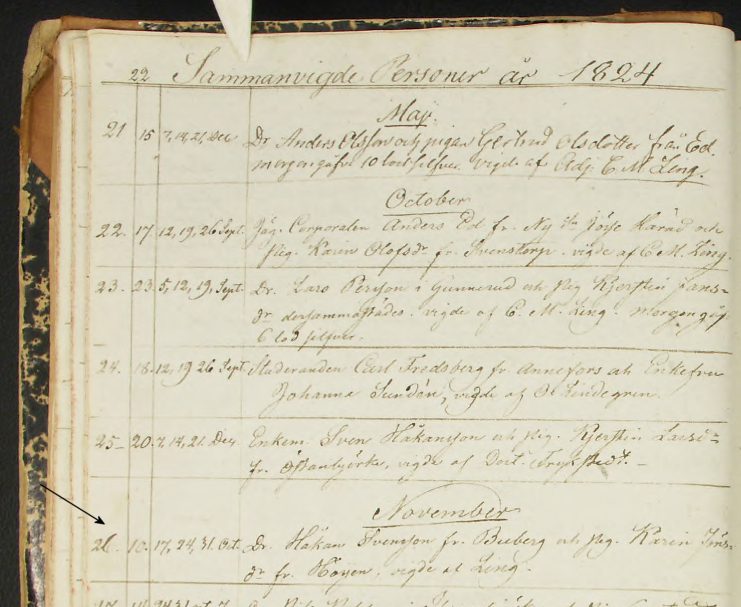 22 Sammanvigde Personer år 1824
Maj.
21 15 7, 14, 21, Dec Dr. Anders Olsson och pigan Gertrud Olsdotter från Ed.
morgongåfva 10 lod silfver. vigde af Adj. C. M. Ling.
October
22. 17 12, 19, 26 Sept. Jäg. Corporalen Anders Ed fr. Ny Härad och
Pig. Karin Olofsdr fr. Svenstorp. vigde af C. M. Ling.
23. 23 5, 12, 19, Sept. Dr. Lars Person i Gunnerud och Pig Kjerstin Jans=
dr dersammastädes. vigde af C. M. Ling. Morgongåf
6 lod silfver.
24. 18. 12, 19 26 Sept Studeranden Carl Fredsberg fr Annefors och Enkefru
Johanna Sundén, vigde af Lindegren.
25- 20. 7, 14, 21. Dec. Enkem. Sven Håkansson och Pig. Kjerstin Larsd=
fr. vigde af
November
26. 10. 17, 24, 31. Oct. Dr. Håkan Svensson fr. Buberg och Pig. Karin Jons=
dr fr. Höjen, vigde af Ling.